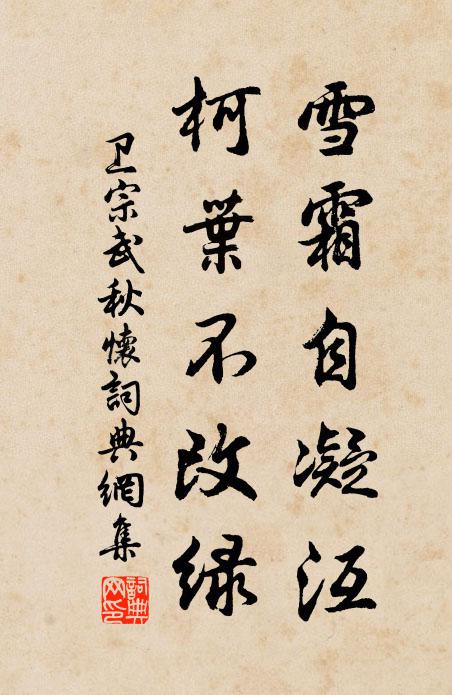 雪霜自凝沍
柯葉不改緑
卫宗武秋懷詞典網集
詞典